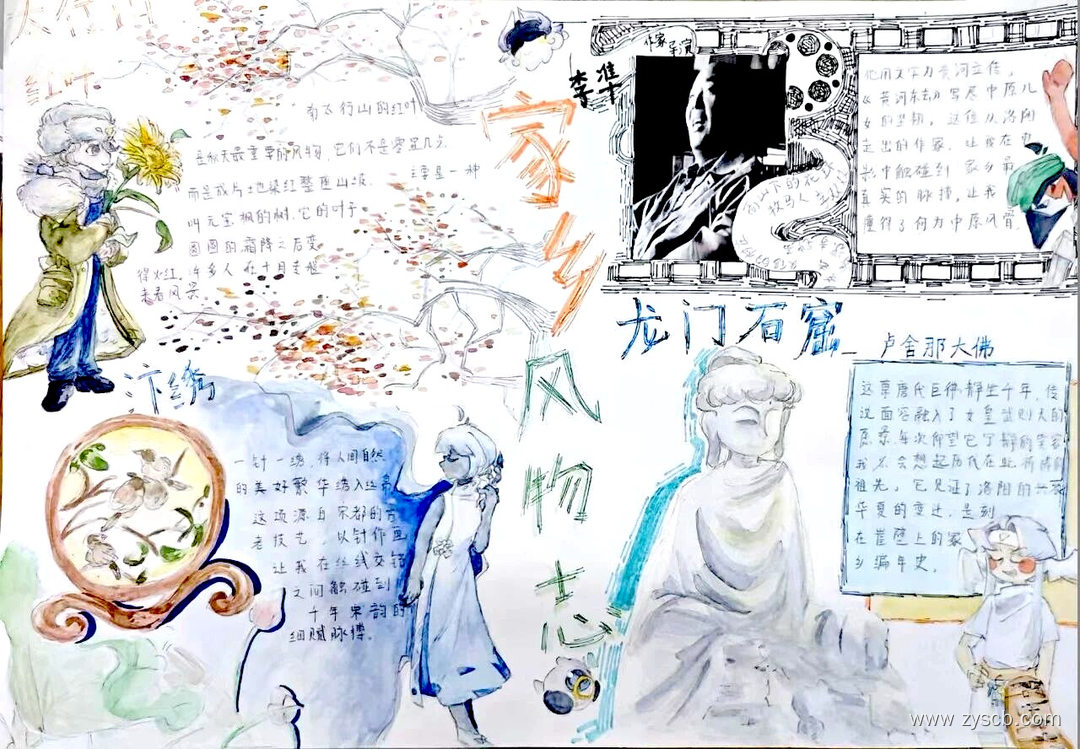 红叶
南太行山的红叶
是秋天最重要的风物，它们不是零星几点
而是成片地染红整座山坡
主要是一种
叫元宝枫的树，它的叶子
圆圆的霜降之后变
得火红，许多人在十月专程
来看风景
家乡
风物志
作家 导演
李准
他用文字为黄河立传，
《黄河东去》写尽中原儿
女的坚韧，这位从洛阳
走出的作家，让我在
触碰到家乡最
真实的脉搏，让我
懂得了何为中原风骨
高山下的花环
牧马人
龙门石窟
卢舍那大佛
这尊唐代巨佛静坐千年，传
说面容融入了女皇武则天的
愿景每次仰望它宁静的笑容
我总会想起历代在此祈祷的
祖先，它见证了洛阳的兴衰
华夏的变迁，是刻
在崖壁上的家
乡编年史。
汴绣
一针一线，将人间自然
的美好繁华绣入丝帛
这项源自宋都的古
老技艺，以针作画
让我在丝线交错
之间触碰到
千年宋韵的
细腻脉搏。
www.zysco.com